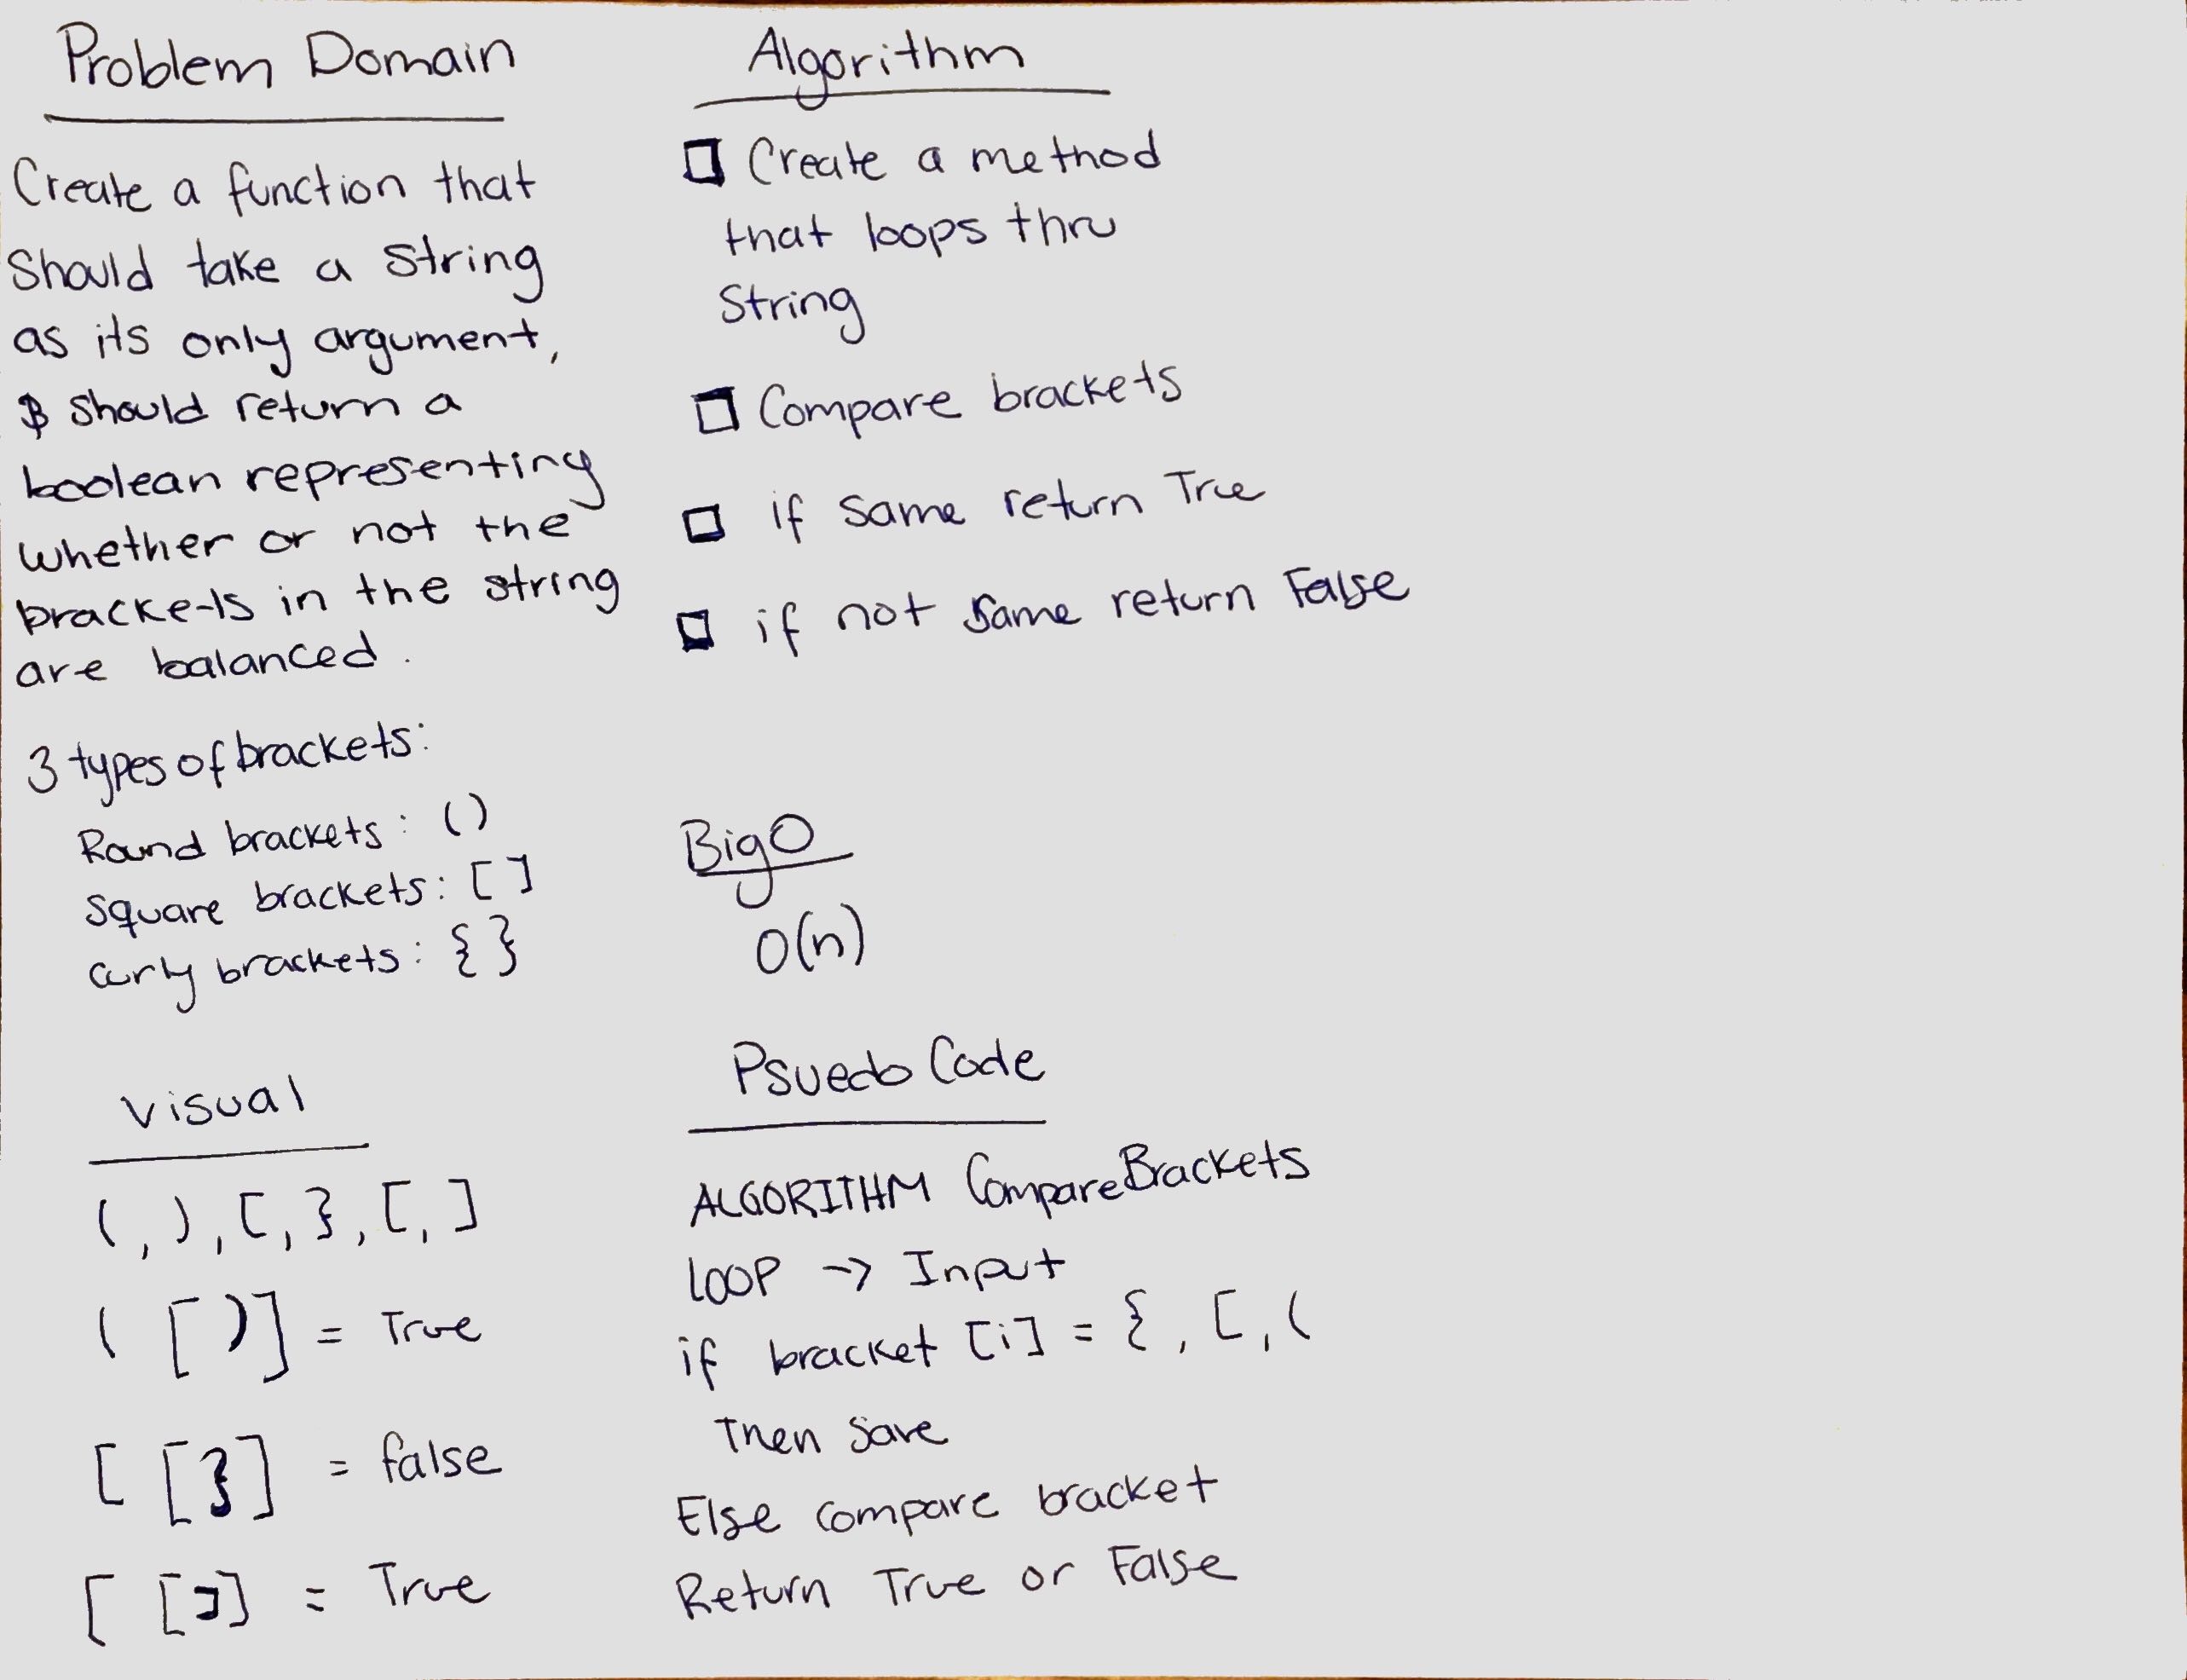 Problem Domain
Create a function that
should take a string
as its only argument,
$ should return a
boolean representing
whether or not the
brackets in the string
are balanced.
3 types of brackets:
Round brackets: ()
square brackets: []
curly brackets: {}
visual
(,),[,},[,]
([)] = True
[[}] = false
[[]] = True
Algorithm
Create a method
that loops thru
String
Compare brackets
if same return True
if not same return False
Big O
O(n)
Psuedo Code
ALGORITHM CompareBrackets
LOOP -> Input
if bracket [i] = {, [, (
Then save
Else compare bracket
Return True or False